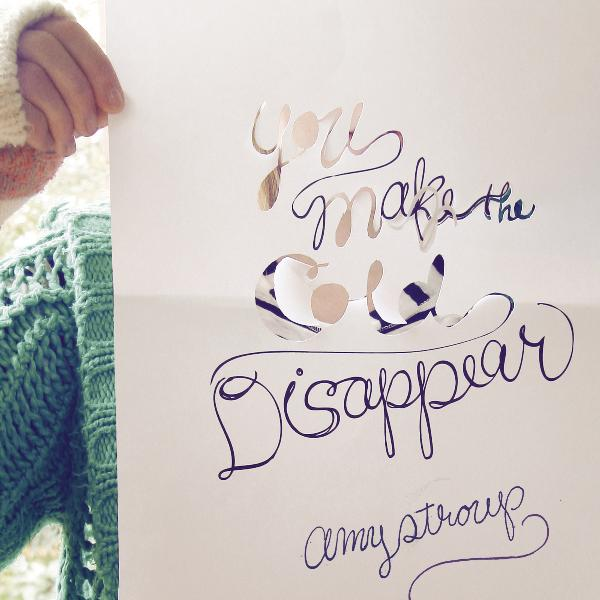 you
make the
Cold
Disappear
amy stroup